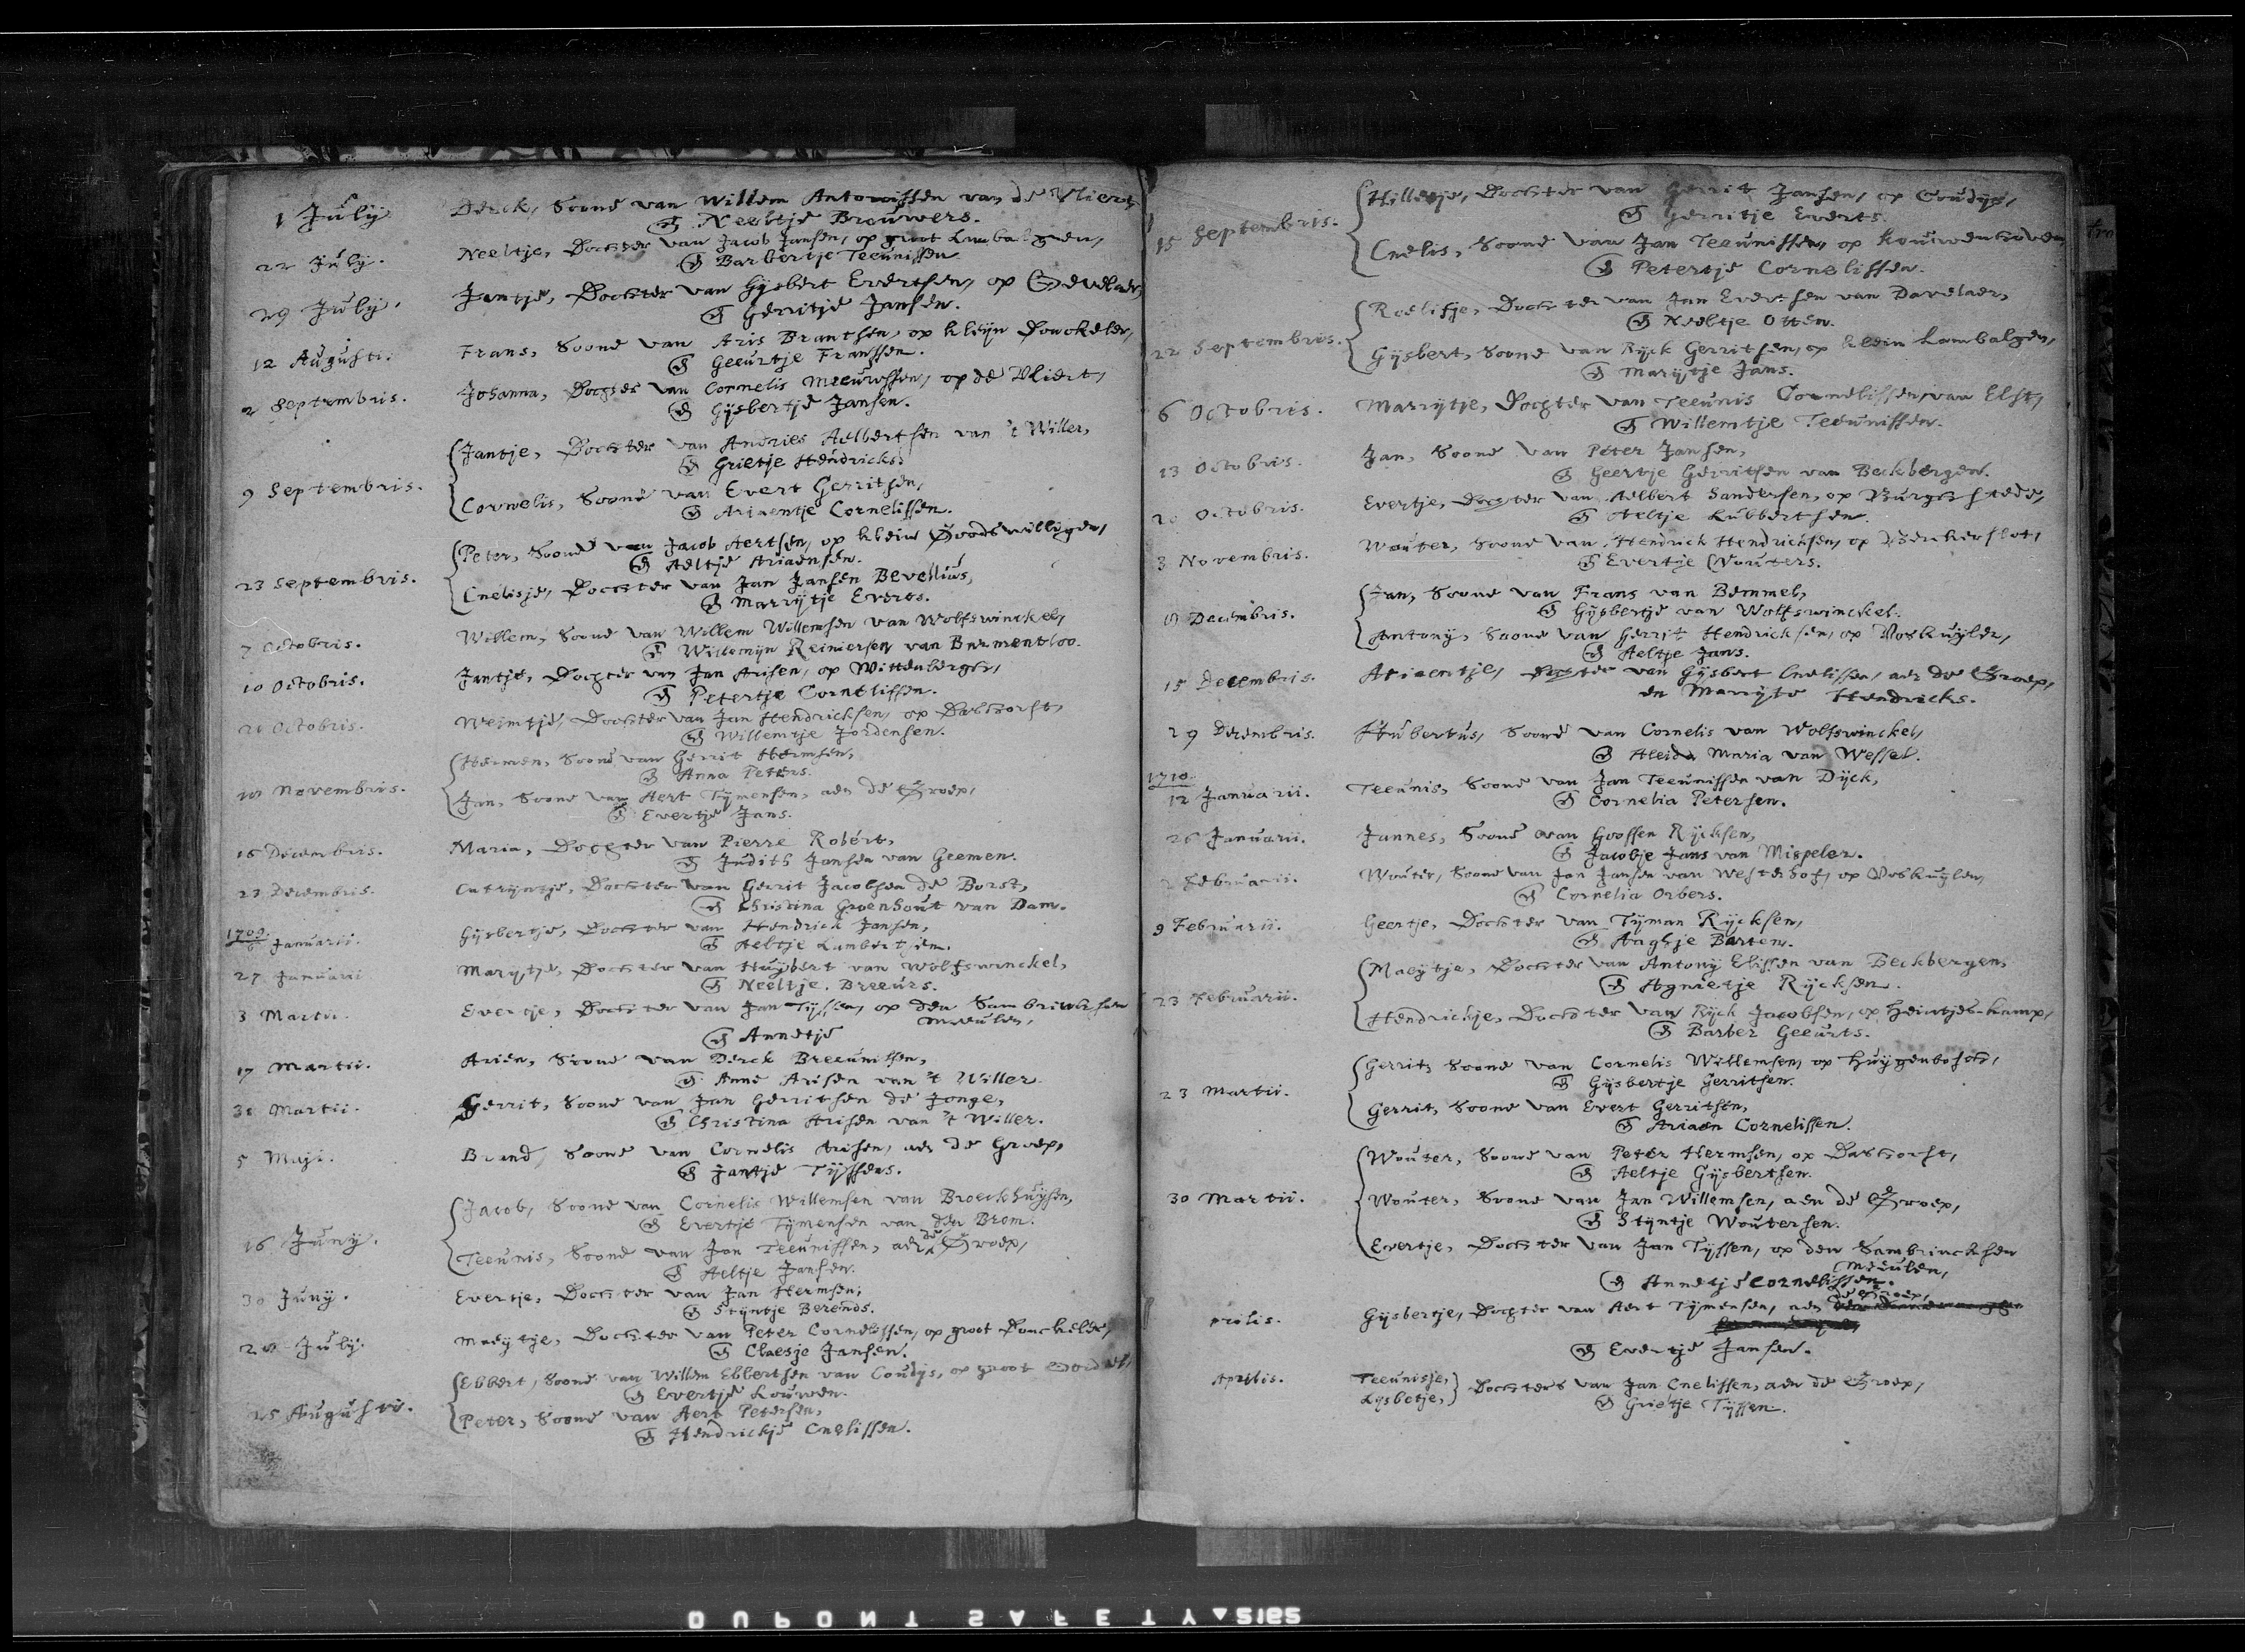 1 July Derck, Soone van Willem Antonissen van de Vliert,
& Neeltje Brouwers.
22 July. Neeltje, Dochter van Jacob Jansen, op groot Lambalgen,
& Barbertje Teeunissen
29 July. Jantje, Dochter van Gysbert Evertsen, op Gevelaer,
& Gerritje Jansen.
12 Augusti. Frans, Soone van Aris Brantsen, op kleijn Donckeler,
& Geeurtje Franssen.
2 Septembris. Johanna, Dochter van Cornelis Meeuwssen, op de Vliert,
& Gijsbertje Jansen.
Jantje, Dochter van Andries Aelbertsen van 't Willer,
& Grietje Hendricks.
9 Septembris.
Cornelis, Soone van Evert Gerritsen,
& Ariaentje Cornelissen.
Peter, Soone van Jacob Aertsen, op klein Goodswilligen,
& Aeltje Ariaensen.
23 Septembris.
Cnelisje, Dochter van Jan Jansen Bevellius,
& Marrytje Everts.
7 Octobris. Willem, Soone van Willem Willemsen van Wolfswinckel,
& Willemijn Reiniersen van Barmentloo.
10 Octobris. Jantje, Dochter van Jan Arisen, op Wittenberger,
& Petertje Cornelissen.
21 Octobris. Weimtje, Dochter van Jan Hendricksen, op Dashorst,
& Willemtje Jordensen.
Hermen, Soone van Gerrit Hermsen,
& Anna Peters.
Novembris.
Jan, Soone van Aert Tymensen, aen de Groep,
& Evertje Jans.
16 Decembris. Maria, Dochter van Pierre Robert,
& Judith Jansen van Geemen.
23 Decembris. Catryntje, Dochter van Gerrit Jacobsen de Borst,
& Christina Groenhout van Dam.
1709.
6 Januarii. Gijsbertje, Dochter van Hendrick Jansen,
& Aeltje Lambertsen.
27 Januarii Marytje, Dochter van Huybert van Wolfswinckel,
& Neeltje Breeurs.
3 Martii. Evertje, Dochter van Jan Tyssen, op den Sambrincksen
Meulen,
& Annetje
17 Martii. Arien, Soone van Derck Breeunissen,
& Anne Arisen van 't Willer
31 Martii. Gerrit, Soone van Jan Gerritsen de Jonge,
& Christina Arisen van 't Willer.
5 Maji. Brand, Soone van Cornelis Arisen, aen de Groep,
& Jantje Tyssens.
Jacob, Soone van Cornelis Willemsen van Broeckhuysen,
& Evertje Tymensen van den Brom.
16 Juny.
Teeunis, Soone van Jan Teeunissen, aen de Groep,
& Aeltje Jansen.
30 Juny. Evertje, Dochter van Jan Hermsen,
& Styntje Berends.
July. Maeytje, Dochter van Peter Cornelissen, op groot Donckeler,
& Claesje Jansen.
Ebbert, Soone van Willem Ebbertsen van Coudijs, op groot
& Evertje Louwen.
25 Augusti.
Peter, Soone van Aert Petersen,
& Hendrickje Cnelissen.
Hilletje, Dochter van Gerrit Jansen, op Coudijs,
& Gerritje Everts.
15 Septembris.
Cnelis, Soone van Jan Teeunissen, op Kouwenhoven,
& Petertje Cornelissen.
Roelisje, Dochter van Jan Evertsen van Davelaer,
& Neeltje Otten.
22 Septembris.
Gijsbert, Soone van Ryck Gerritsen, op klein Lambalgen,
& Marijtje Jans.
6 Octobris. Marrytje, Dochter van Teeunis Cornelissen van Elst,
& Willemtje Teeunissen.
13 Octobris. Jan, Soone van Peter Jansen,
& Geertje Gerritsen van Beckbergen.
20 Octobris. Evertje, Dochter van Aelbert Sandersen, op Burgstede,
& Aeltje Lubbertsen.
3 Novembris. Wouter, Soone van Hendrick Hendricksen, op
& Evertje Wouters.
Jan, Soone van Frans van Bemmel,
& Gijsbertje van Wolfswinckel.
Decembris.
Antony, Soone van Gerrit Hendricksen, op Voskuylen,
& Aeltje Jans.
15 Decembris. Ariaentje, Dochter van Gijsbert Cnelissen, aen de Groep,
en Marrytje Hendricks.
29 Decembris. Hubertus, Soone van Cornelis van Wolfswinckel,
& Aleida Maria van Wessel.
1710
12 Januarii. Teeunis, Soone van Jan Teeunissen van Dijck,
& Cornelia Petersen.
26 Januarii. Jannes, Soone van Goossen Rycksen,
& Jacobje Jans van Mispeler.
Februarii. Wouter, Soone van Jan Jansen van Westerhof, op Voskuylen,
& Cornelia Orbers.
9 Februarii. Geertje, Dochter van Tyman Rycksen,
& Aaghje Bartem.
Maeytje, Dochter van Antony Elissen van Beckbergen,
& Agnietje Rycksen.
23 Februarii.
Hendrickje, Dochter van Ryck Jacobsen, op Heintjes-kamp,
& Barber Geeurts.
Gerrit, Soone van Cornelis Willemsen, op Huygenbosch,
& Gijsbertje Gerritsen.
23 Martii.
Gerrit, Soone van Evert Gerritsen,
& Ariaen Cornelissen.
Wouter, Soone van Peter Hermsen, op Dashorst,
& Aeltje Gijsbertsen.
30 Martii. Wouter, Soone van Jan Willemsen, aen de Groep,
& Styntje Woutersen.
Evertje, Dochter van Jan Tyssen, op den Sambrincksen
Meulen,
& Annetje Cornelissen.
prilis. Gijsbertje, Dochter van Aert Tymensen, aen de Groep,
& Evertje Jansen.
Aprilis. Teeunisje,
Lijsbetje, Dochters van Jan Cnelissen, aen de Groep,
& Grietje Tyssen.
DUPONT SAFETY 5165